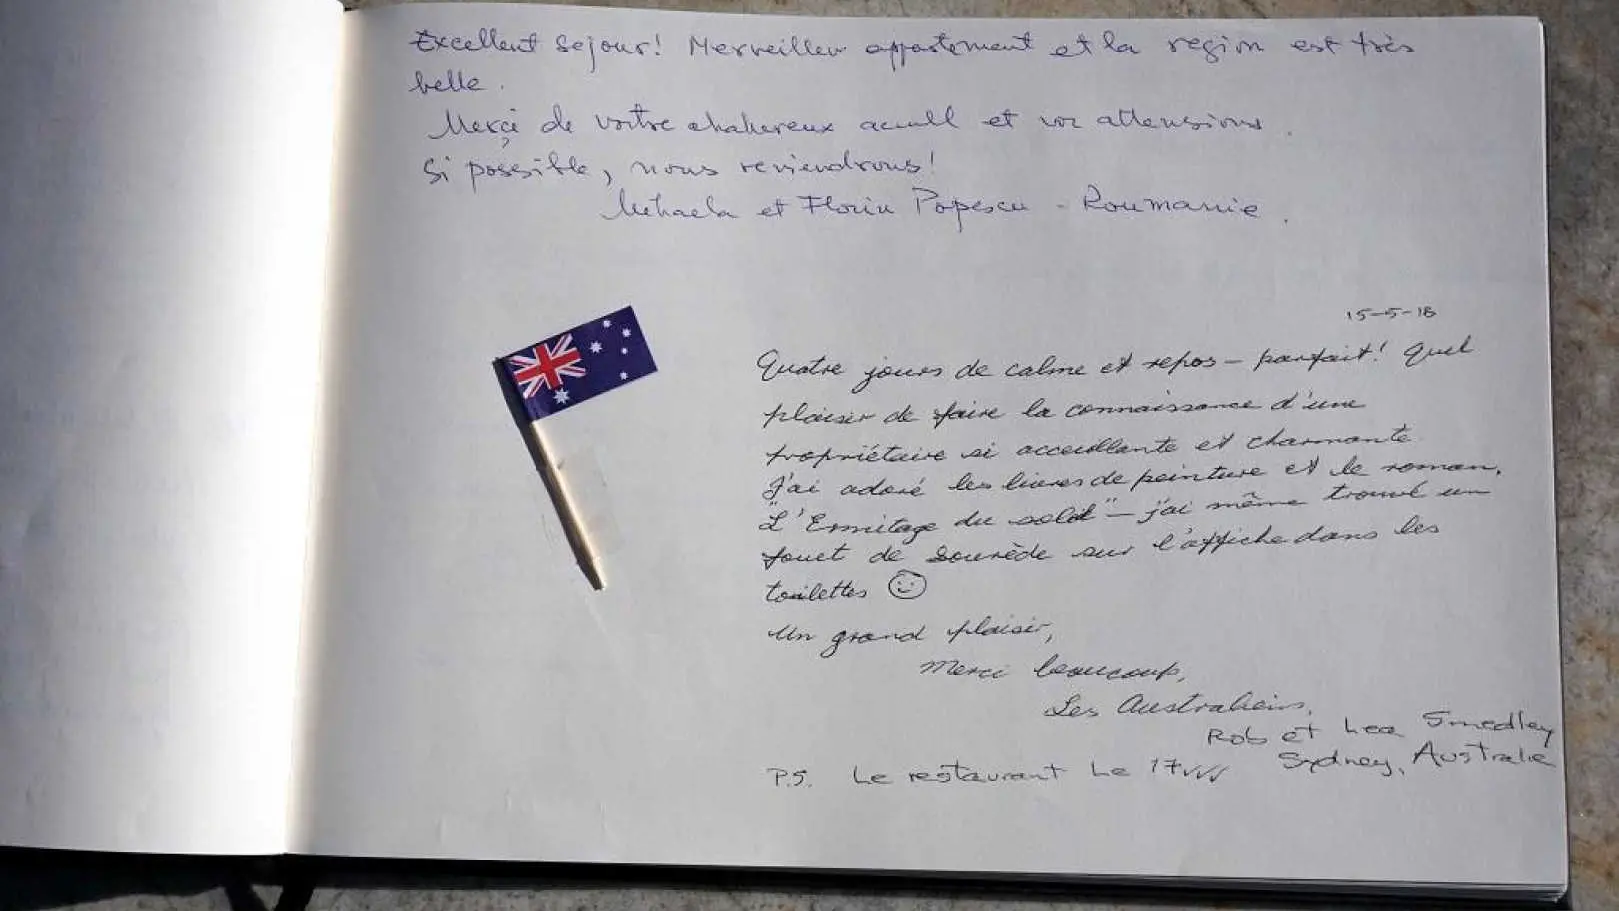 Excellent sejour! Merveilleu appartement et la region est très
belle.
Merçi de voitre chalhereux acuill et vor attensions.
Si possible, nous reviendrons!
Mihaela et Florin Popescu - Roumanie.
15-5-18
Quatre jours de calme et repos – parfait! Quel
plaisir de faire la connaissance d'une
propriétaire si accueillante et charmante.
J'ai adoré les livres de peinture et le roman,
"L'Ermitage du soleil" – j'ai même trouvé un
fouet de Sourède sur l'affiche dans les
toilettes ☺
Un grand plaisir,
Merci beaucoup,
Les Australiens,
Rob et Lea Smedley
Sydney, Australie
P.S. Le restaurant Le 17 ✓✓✓